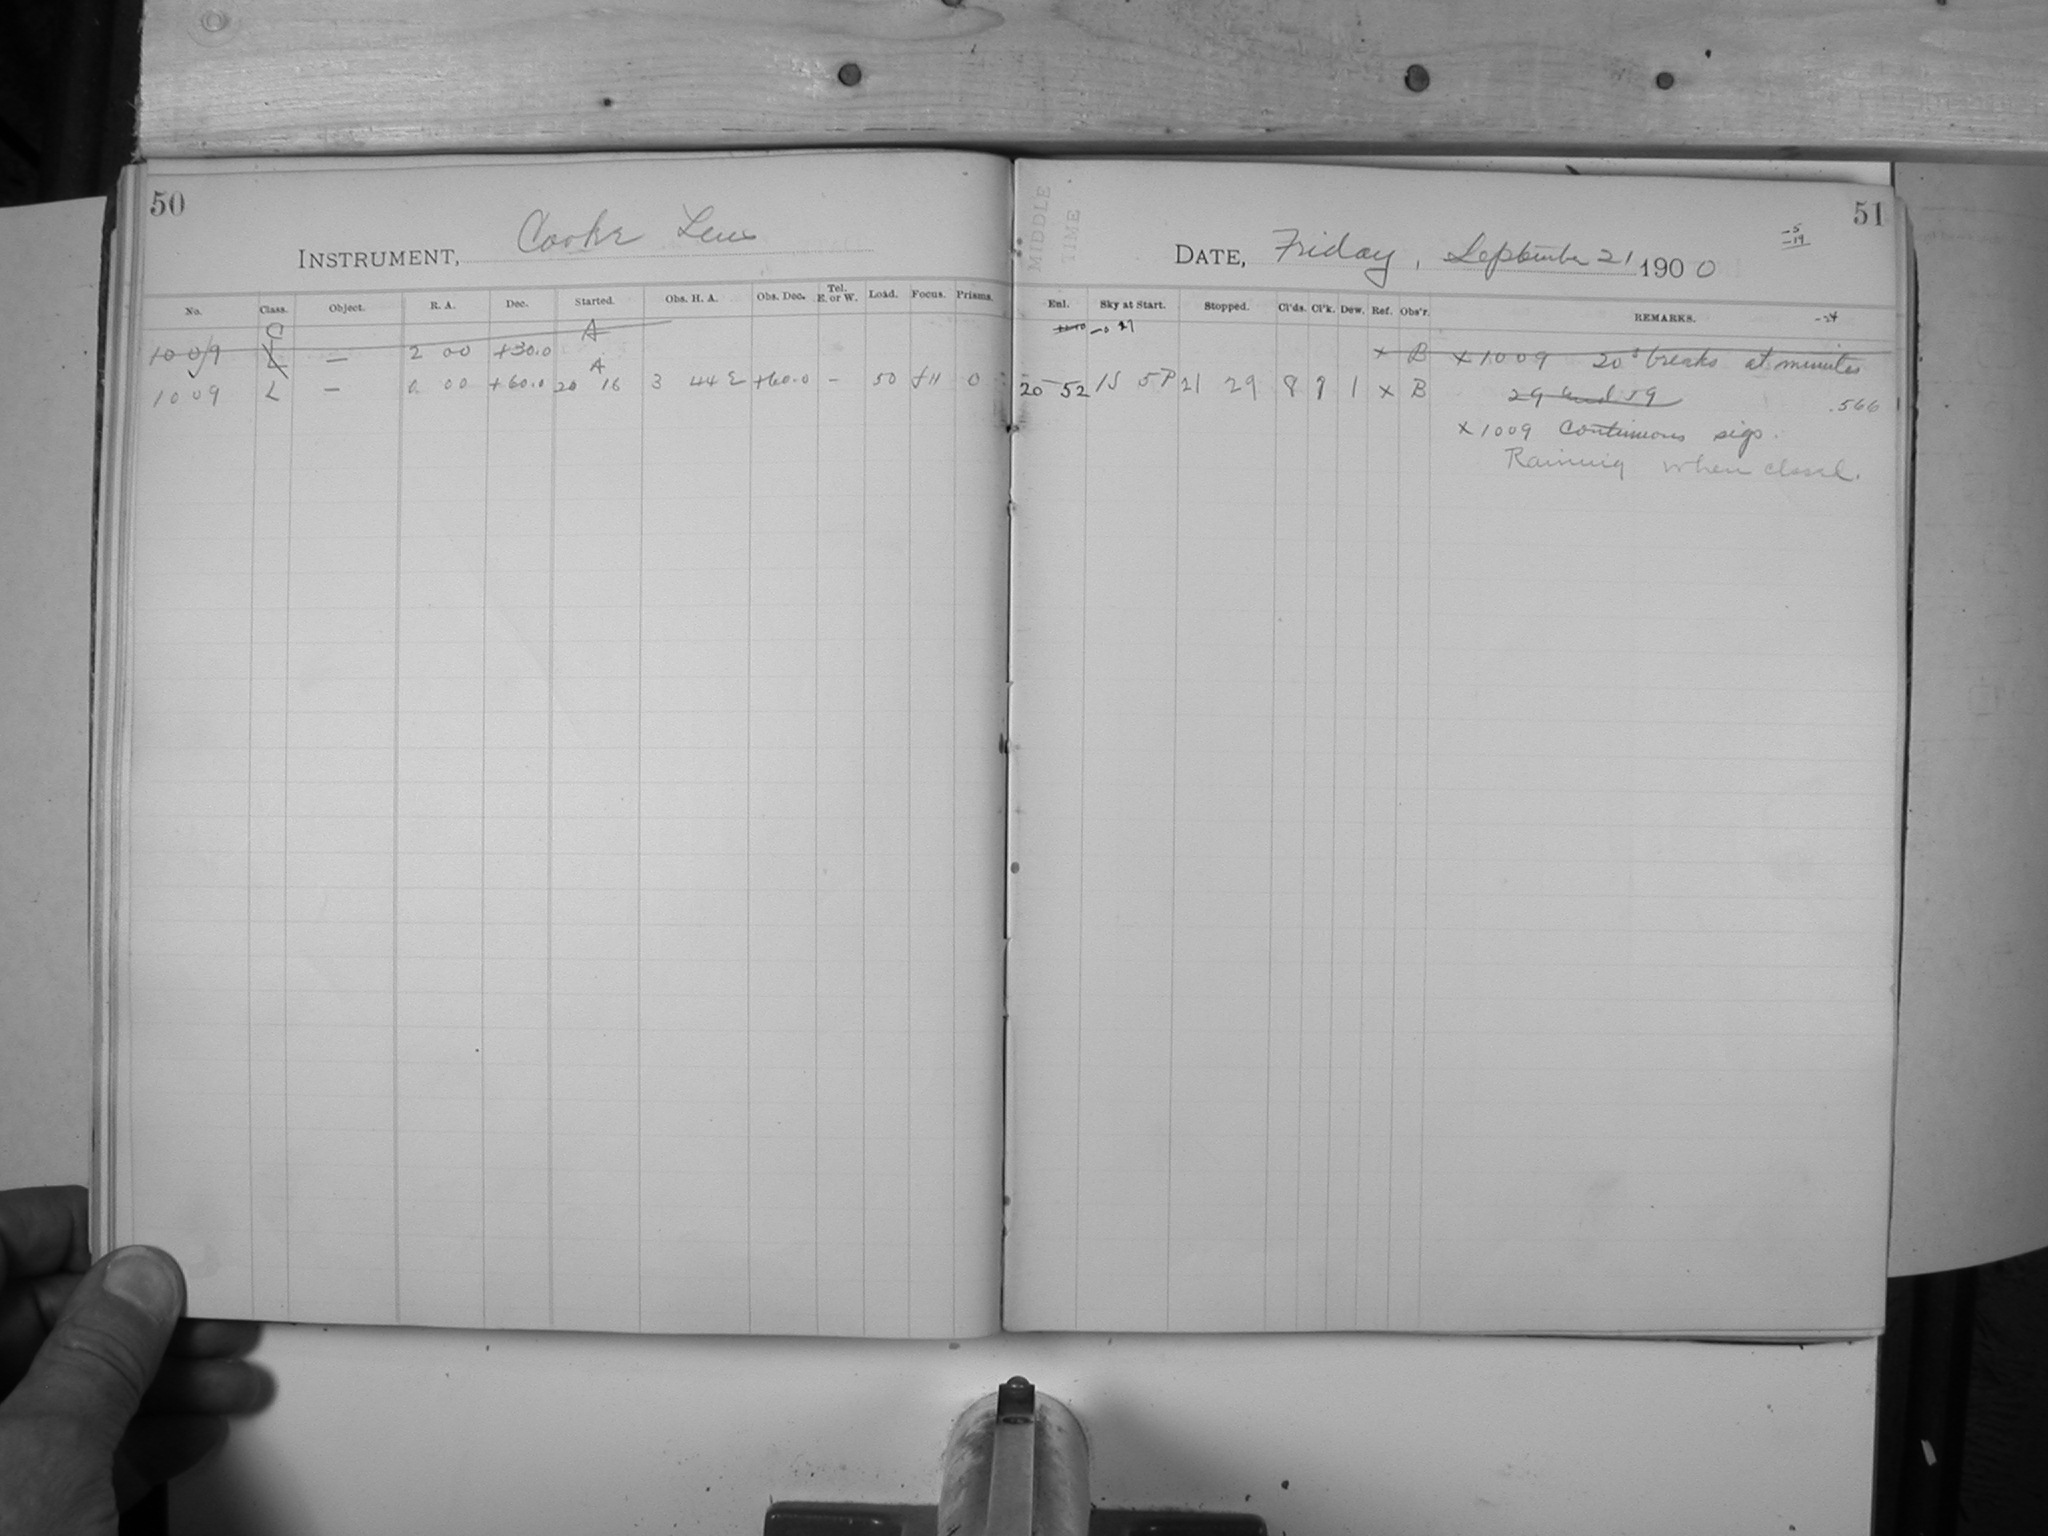 50
INSTRUMENT, Cooke Lens
No. Class. Object. R. A. Dec. Started. Obs. H. A. Obs. Dec. Tel. E. or W. Load. Focus. Prisms.
C A
1009 L — 2 00 +30.0
A
1009 L — 0 00 +60.0 20 16 3 44 E +60.0 — 50 f11 0
MIDDLE
TIME
51
-5
-19
DATE, Friday, September 21 1900
Enl. Sky at Start. Stopped. Cl'ds. Cl'k. Dew. Ref. Obs'r. REMARKS.
x B x 1009 20s breaks at minutes
20 52 1S 5P 21 29 8 9 1 x B 29 and 59 .566
x 1009 Continuous sigs.
Raining when closed.